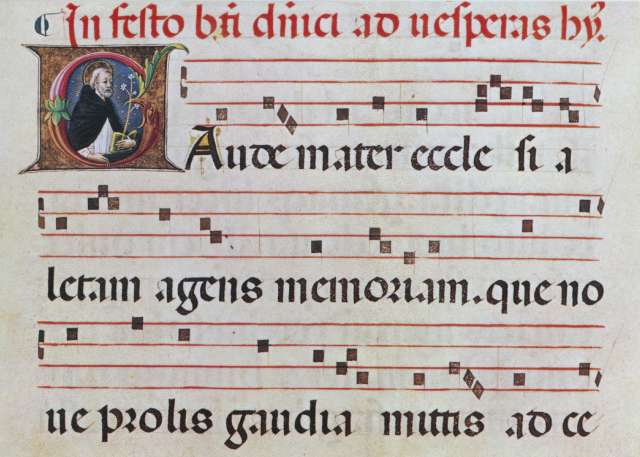 In festo bti dnici ad uesperas hy.
GAude mater ecclesia
letam agens memoriam. que no
ue prolis gaudia mittis ad ce